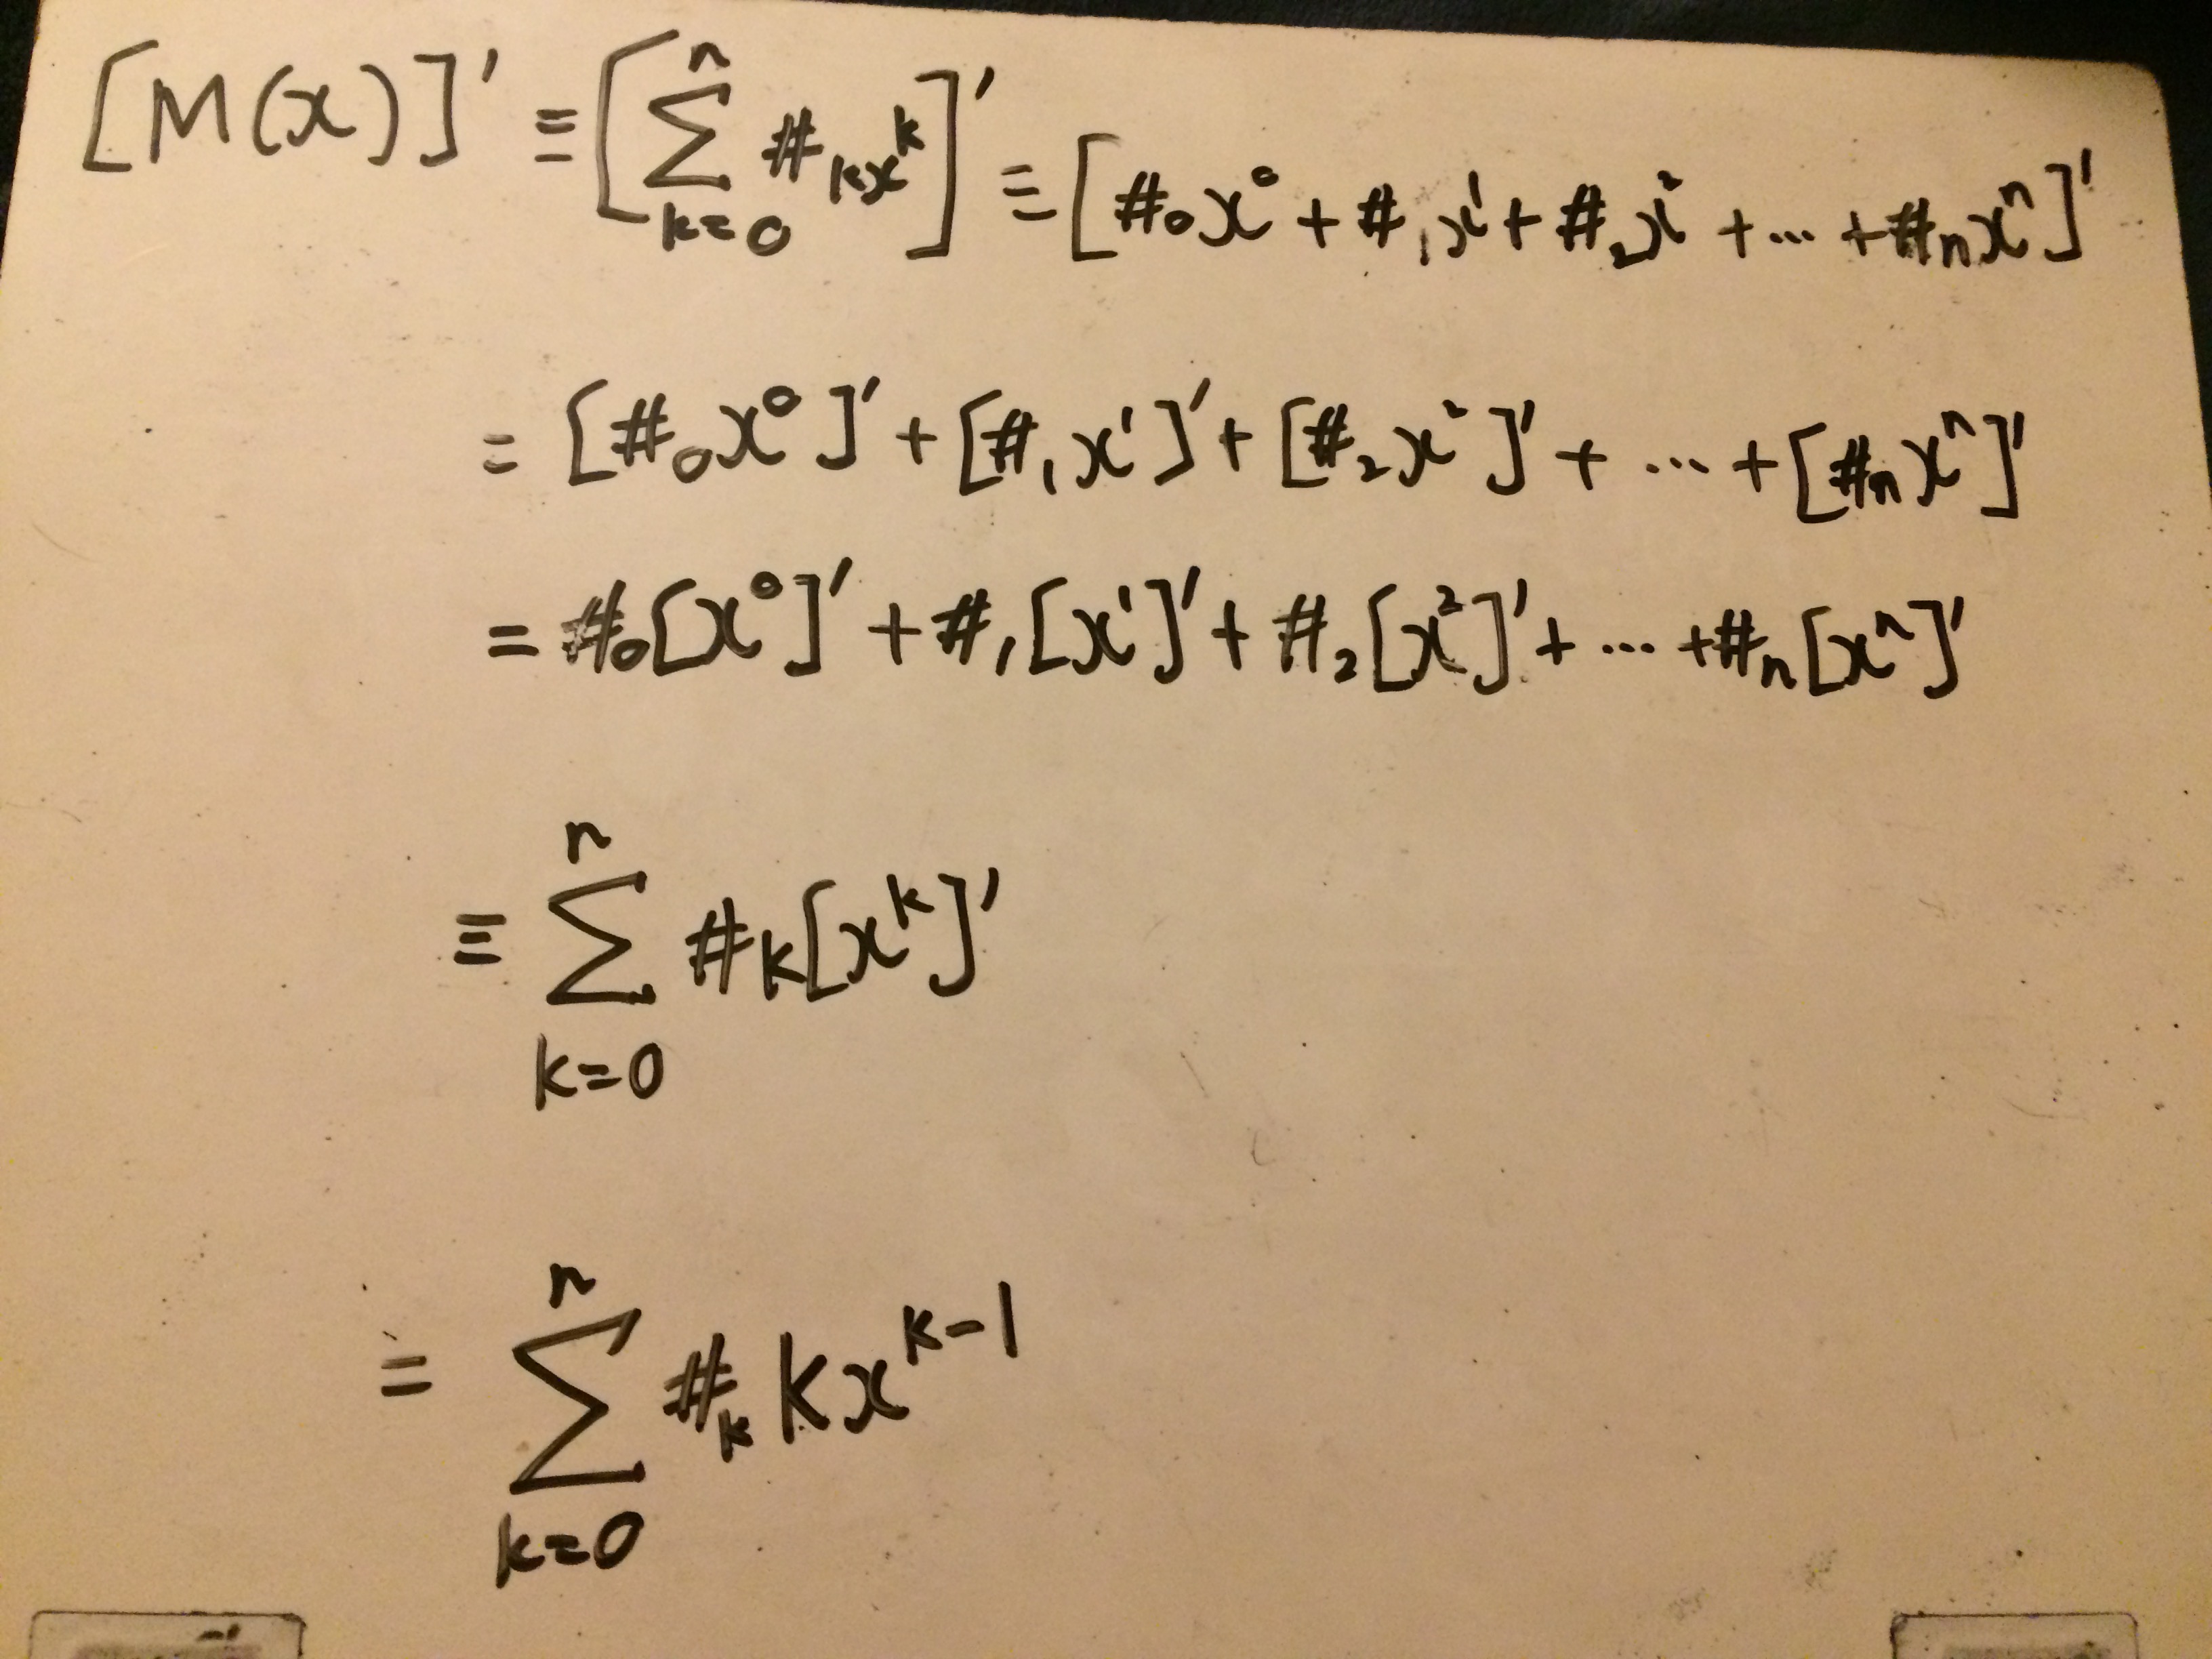 [M(x)]' ≡ [∑_{k=0}^{n} #_k x^k]' ≡ [#_0 x^0 + #_1 x^1 + #_2 x^2 + ... + #_n x^n]'
= [#_0 x^0]' + [#_1 x^1]' + [#_2 x^2]' + ... + [#_n x^n]'
= #_0 [x^0]' + #_1 [x^1]' + #_2 [x^2]' + ... + #_n [x^n]'
≡ ∑_{k=0}^{n} #_k [x^k]'
= ∑_{k=0}^{n} #_k k x^{k-1}